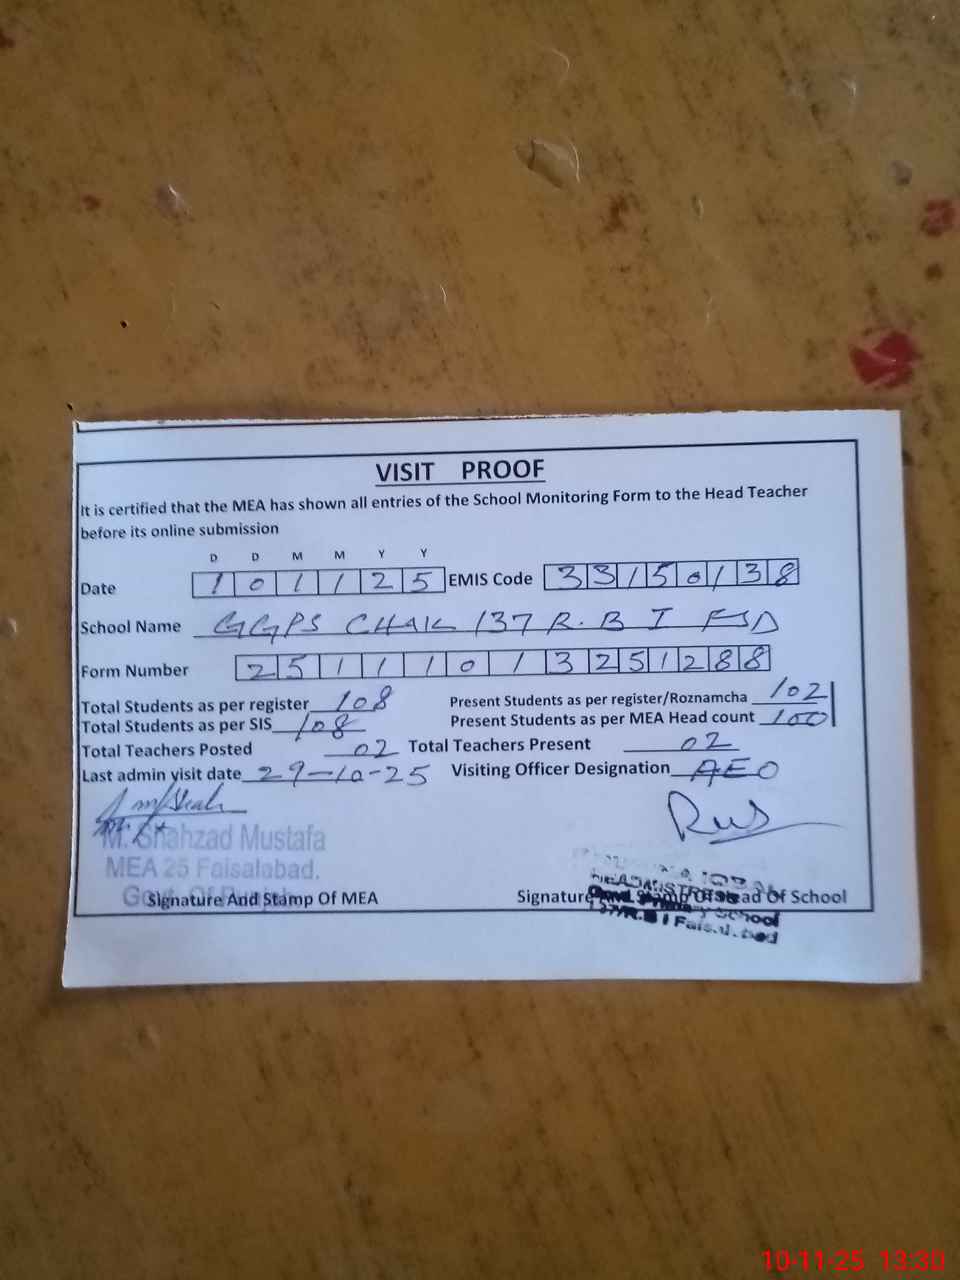 VISIT PROOF
It is certified that the MEA has shown all entries of the School Monitoring Form to the Head Teacher
before its online submission
D D M M Y Y
Date 1 0 1 1 2 5 EMIS Code 3 3 1 5 0 1 3 8
School Name GGPS CHAK 137 R.B I FSD
Form Number 2 5 1 1 1 0 1 3 2 5 1 2 8 8
Total Students as per register 108 Present Students as per register/Roznamcha 102
Total Students as per SIS 108 Present Students as per MEA Head count 100
Total Teachers Posted 02 Total Teachers Present 02
Last admin visit date 29-10-25 Visiting Officer Designation AEO
M. Shahzad Mustafa
MEA 25 Faisalabad.
Govt. Of Punjab
Signature And Stamp Of MEA Signature And Stamp Of Head Of School
HEADMISTRESS
Primary School
137/R.B I Faisalabad
10-11-25 13:30